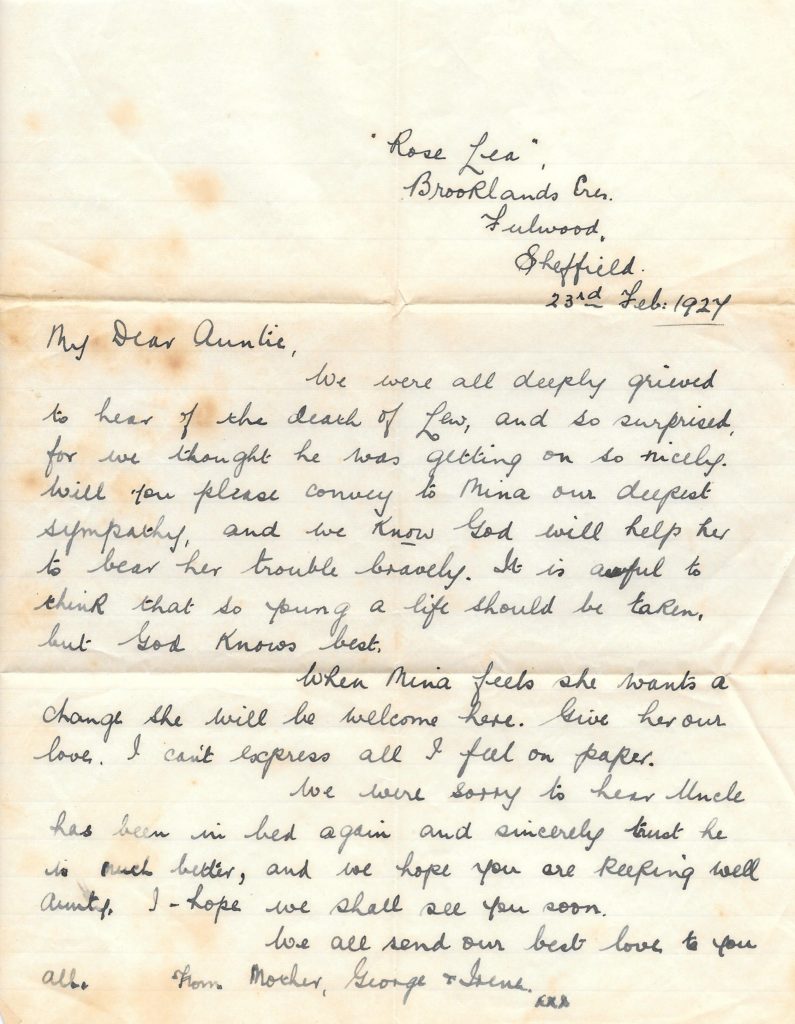 "Rose Lea",
Brooklands Cres.
Fulwood,
Sheffield.
23rd Feb: 1927
My Dear Auntie,
We were all deeply grieved
to hear of the death of Lew, and so surprised,
for we thought he was getting on so nicely.
Will you please convey to Mina our deepest
sympathy, and we know God will help her
to bear her trouble bravely. It is awful to
think that so young a life should be taken,
but God knows best.
When Mina feels she wants a
change she will be welcome here. Give her our
love. I can't express all I feel on paper.
We were sorry to hear Uncle
has been in bed again and sincerely trust he
is much better, and we hope you are keeping well
Aunty. I - hope we shall see you soon.
We all send our best love to you
all. From Mother, George & Irene.
xxx